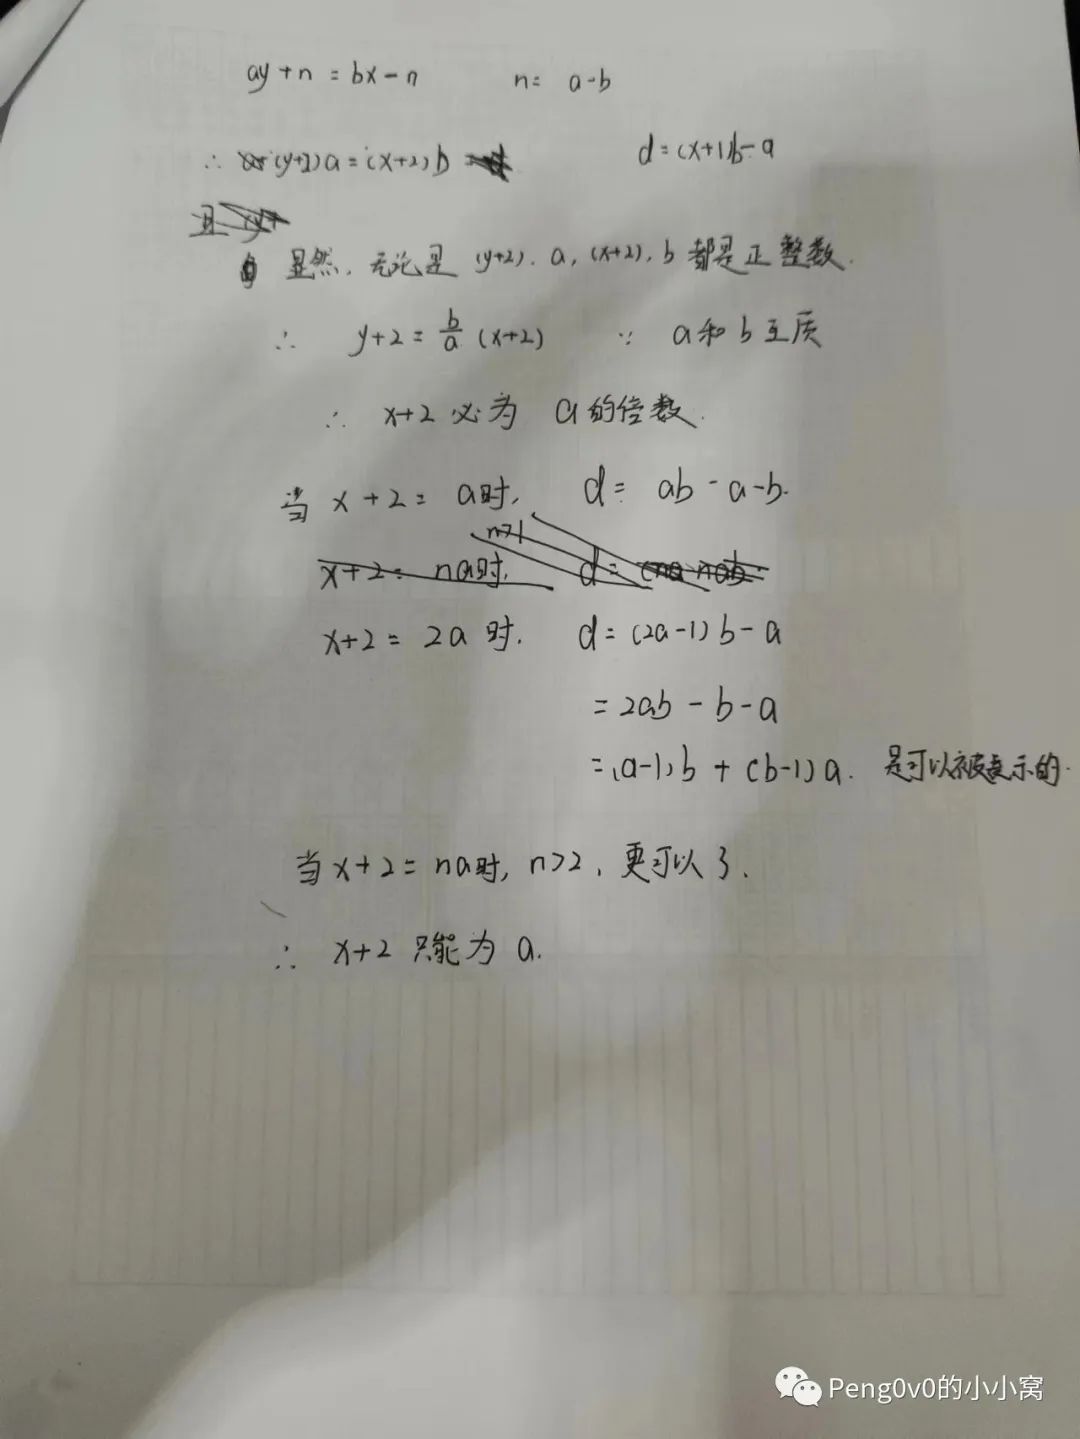 ay+n = bx-n n= a-b
∴ (y+2)a=(x+2)b d=(x+1)b-a
且
显然,无论是 (y+2). a, (x+2), b 都是正整数.
∴ y+2 = b/a (x+2) ∵ a和b互质
∴ x+2 必为 a的倍数.
当 x+2= a时, d= ab-a-b.
n>1
x+2= na时, d=
x+2= 2a时. d= (2a-1)b-a
= 2ab-b-a
=(a-1)b+(b-1)a. 是可以被表示的.
当x+2= na时, n>2, 更可以了.
∴ x+2 只能为 a.
Peng0v0的小小窝